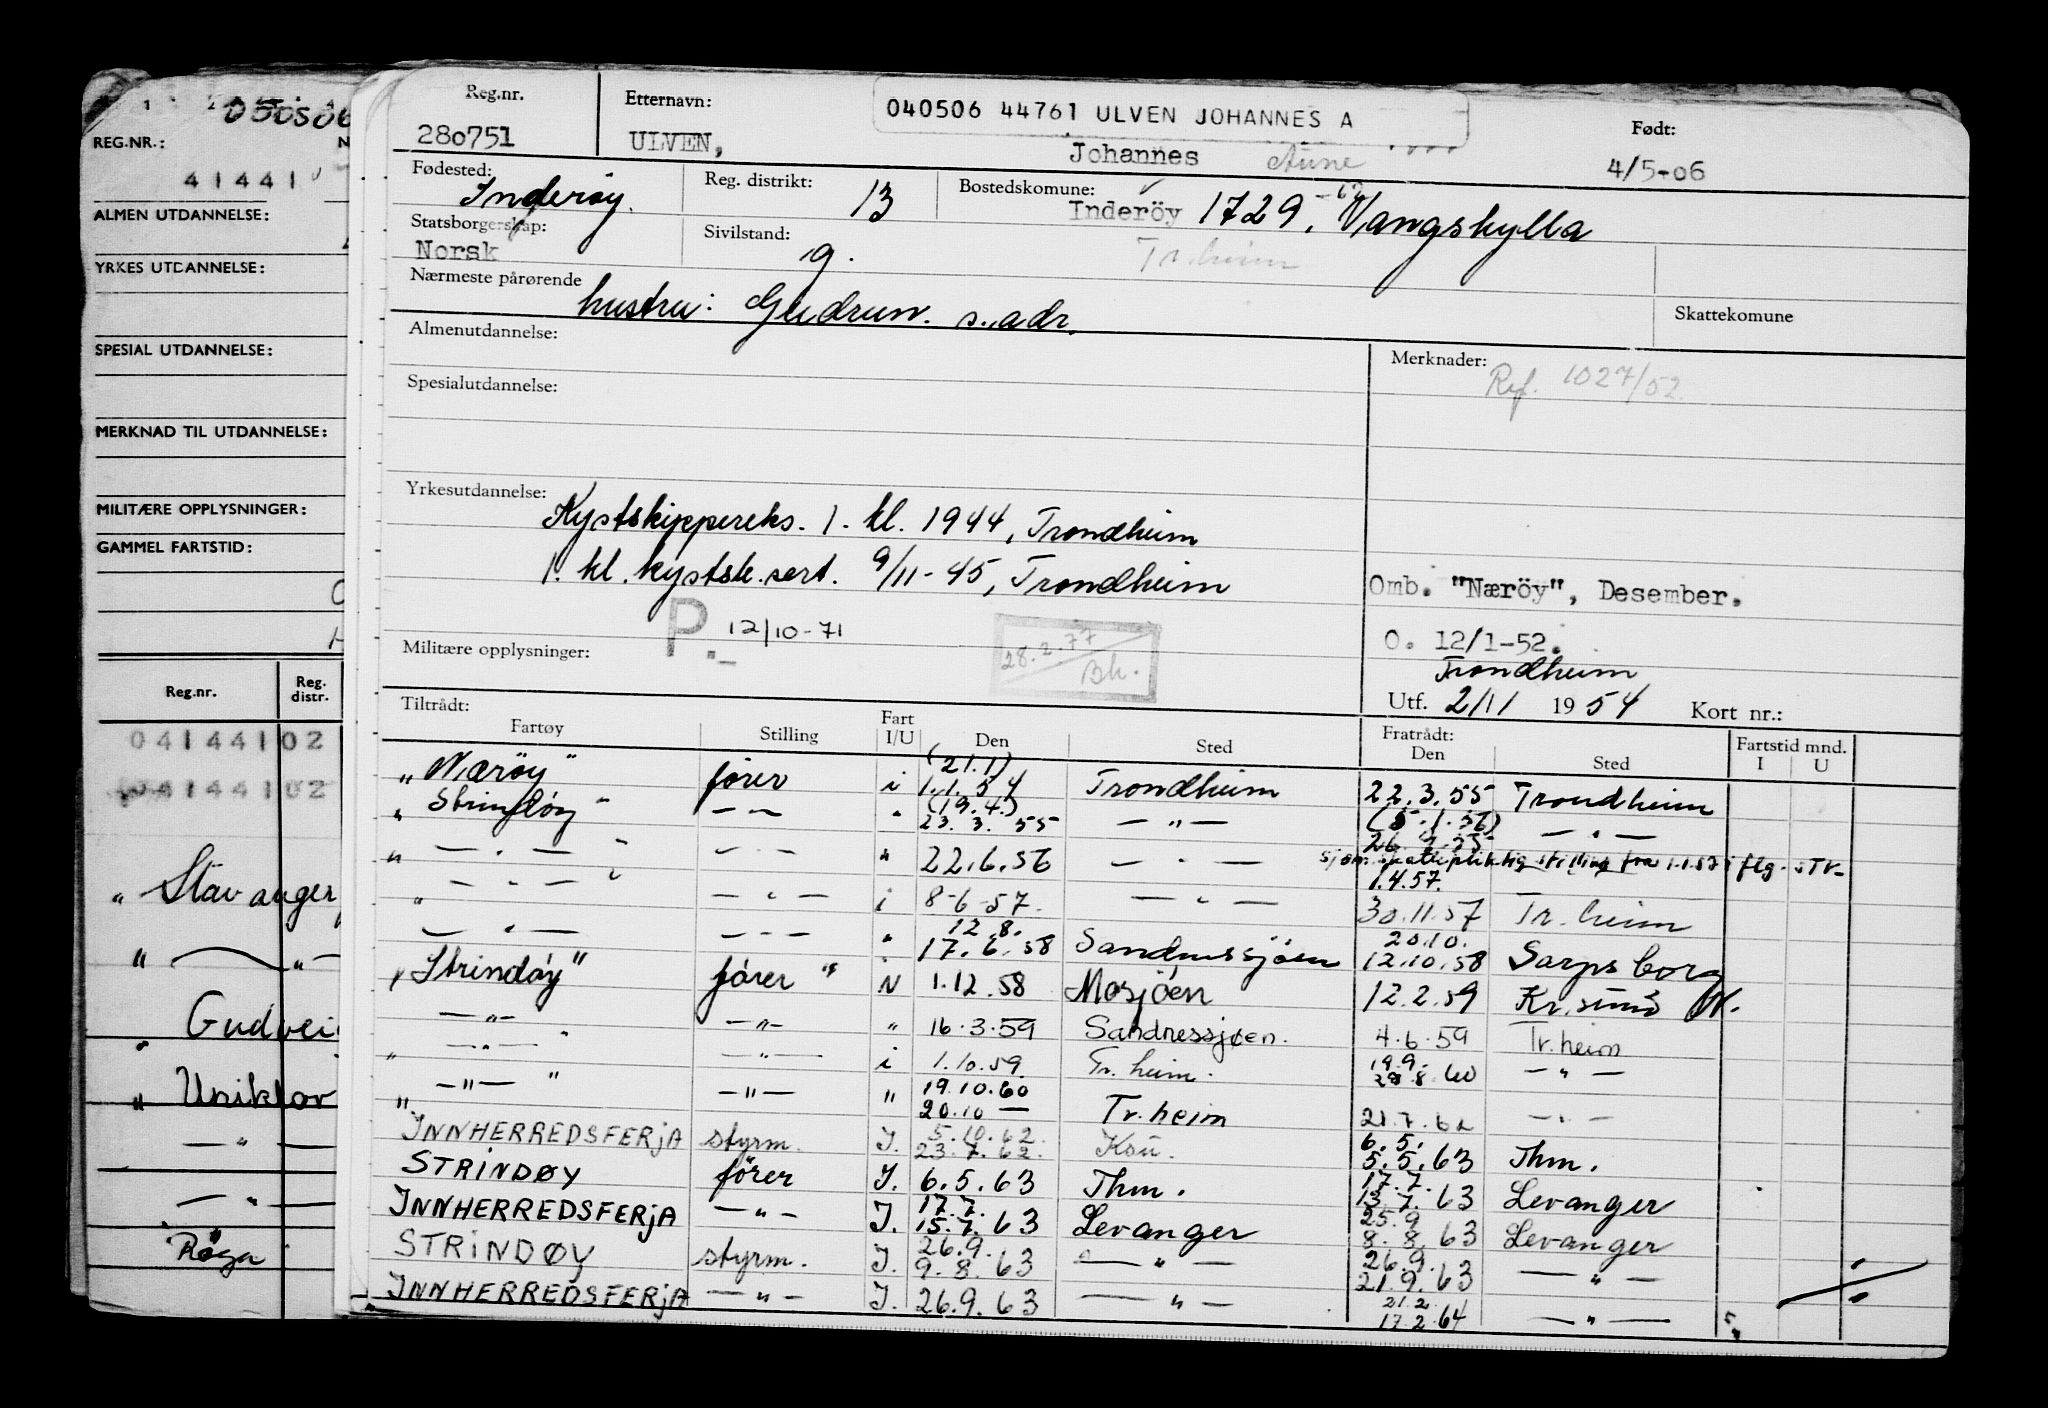 050506
REG.NR.:
41441
ALMEN UTDANNELSE:
YRKES UTDANNELSE:
SPESIAL UTDANNELSE:
MERKNAD TIL UTDANNELSE:
MILITÆRE OPPLYSNINGER:
GAMMEL FARTSTID:
Reg.nr. Reg. distr.
04144102
04144102
" Stavanger
" — " —
Gudvei
" Uniktor
— " —
— " —
Røga
Reg.nr. Etternavn: 040506 44761 ULVEN JOHANNES A Født:
280751 ULVEN, Johannes Aune 4/5-06
Fødested: Reg. distrikt: Bostedskomune:
Inderøy. 13 Inderöy 1729, Vangshylla
Statsborgerskap: Sivilstand:
Norsk g. Tr.heim
Nærmeste pårørende
hustru: Gudrun. s. adr. Skattekomune
Almenutdannelse: Merknader:
Ref. 1027/52.
Spesialutdannelse:
Yrkesutdannelse:
Kystskippereks. 1. kl. 1944, Trondheim
1. kl. kystsk. sert. 9/11-45, Trondheim
Omb. "Næröy", Desember.
P. 12/10-71 28.2.77 Bh.
O. 12/1-52.
Militære opplysninger: Trondheim
Utf. 2/11 1954 Kort nr.:
Tiltrådt: Fratrådt: Fartstid mnd.
Fartøy Stilling Fart I/U Den Sted Den Sted I U
(21.1)
"Nærøy" fører i 1.1.54 Trondheim 22.3.55 Trondheim
(19.4.) (5.1.56)
" Strindøy " — — " 23.3.55 — " — — " —
" — " — " — " — " 22.6.56 — " — sjøm.skattepliktig stilling fra 1.1.57 i flg. STr-
1.4.57.
" — " — " — " — i 8-6-57. — " — 30.11.57 Tr.heim
12.8. 20.10.
— " — — " — " 17.6.58 Sandnessjøen 12.10.58 Sarpsborg
"Strindøy" fører " N 1.12.58 Mosjøen 12.2.59 Kr.sund N.
— " — — " — " 16.3.59 Sandnessjøen. 4.6.59 Tr.heim
19.9.
" — " — " — " — i 1.10.59. Tr.heim. 8.60 — " —
19.10.60
" — " — " — " — " 20.10 — Tr.heim 21.7.62 — " —
5.10.62. 6.5.
INNHERREDSFERJA styrm. I. 23.7.62. Ksu. 5.5.63 Thm.
17.7.
STRINDØY fører I. 6.5.63 Thm. 13.7.63 Levanger
17.7. 25.9
INNHERREDSFERJA — " — I. 15.7.63 Levanger 8.8.63 Levanger
26.9. 26.9.
STRINDØY styrm. I. 9.8.63 — " — 21.9.63 — " —
21.2
INNHERREDSFERJA — " — I. 26.9.63 — " — 17.2.64 — " —